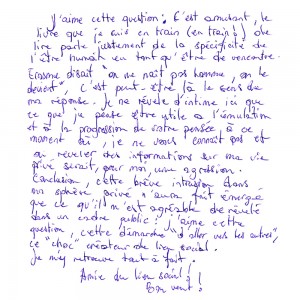 J'aime cette question. C'est amusant, le
livre que je suis en train (en train!) de
lire parle justement de la spécificité de
l'être humain en tant qu'être de rencontre.
Erasme disait "on ne naît pas homme, on le
devient", c'est peut-être là le sens de
ma réponse. Je ne révèle d'intime ici que
ce que je pense être utile à l'émulation
et à la progression de notre pensée, à ce
moment où, je ne vous connaît pas et
où révéler des informations sur ma vie
privé serait, pour moi, une agression.
Conclusion, cette brève intrusion dans
ma sphère privé n'aura fait émerger
que ce qu'il m'est agréable de révéler
dans un cadre public: j'aime cette
question, cette démarche "d'aller vers les autres",
ce "choc" créateur de lien social.
Je m'y retrouve tout à fait!
Amie du lien social!
Bon vent!